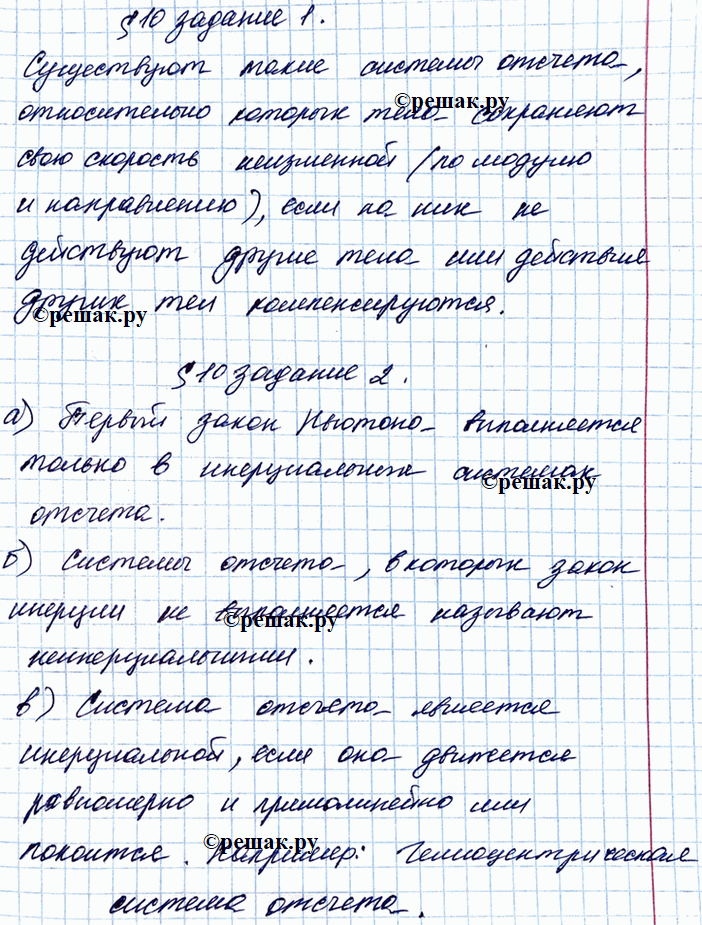 §10 задание 1.
Существуют такие системы отсчета,
относительно которых тела сохраняют
©решак.ру
свою скорость неизменной (по модулю
и направлению), если на них не
действуют другие тела или действия
других тел компенсируются.
©решак.ру
§10 задание 2.
а) Первый закон Ньютона выполняется
только в инерциальных системах
©решак.ру
отсчета.
б) Системы отсчета, в которых закон
инерции не выполняется называют
©решак.ру
неинерциальными.
в) Система отсчета является
инерциальной, если она движется
равномерно и прямолинейно или
покоится. Например: Гелиоцентрическая
©решак.ру
система отсчета.